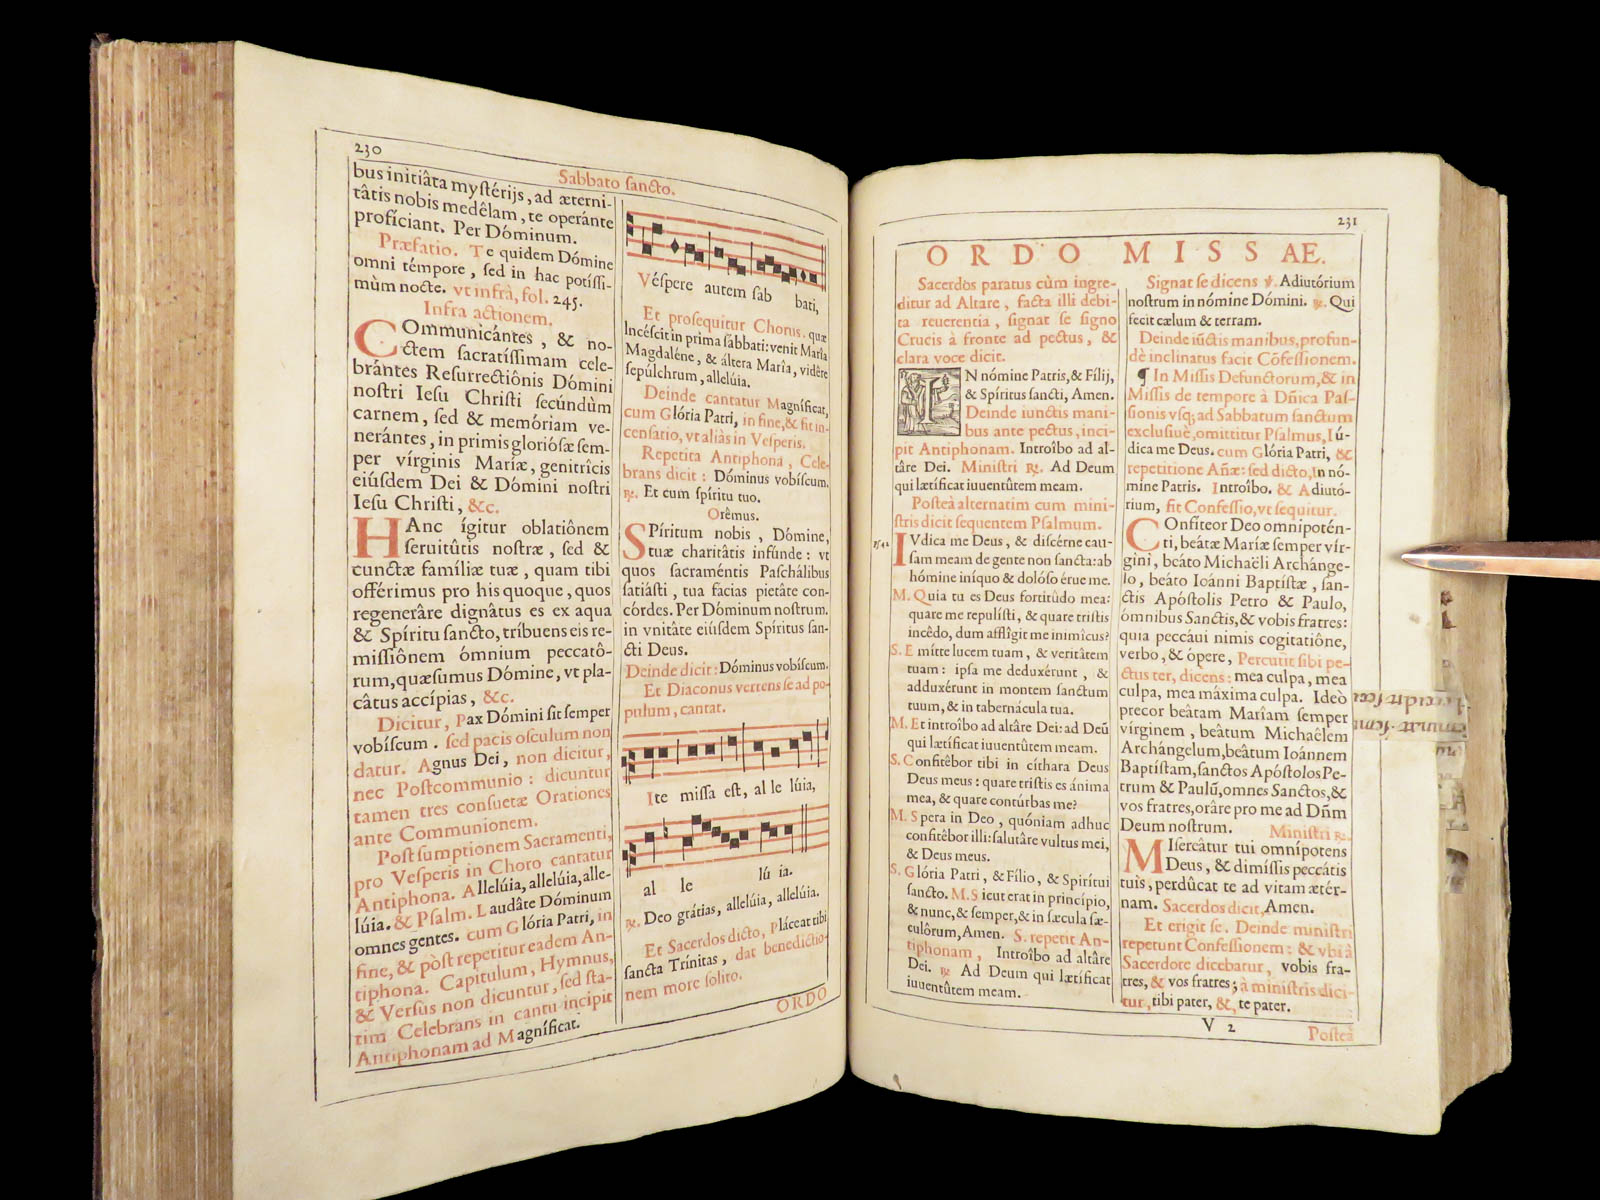 230
Sabbato sancto.
bus initiâta mystérijs, ad æterni-
tâtis nobis medêlam, te operánte
profíciant. Per Dóminum.
Præfatio. Te quidem Dómine
omni témpore, sed in hac potíssi-
mùm nocte. vt infrà, fol. 245.
Infra actionem.
COmmunicántes, & no-
ctem sacratíssimam cele-
brántes Resurrectiônis Dómini
nostri Iesu Christi secúndùm
carnem, sed & memóriam ve-
nerántes, in primis gloriósæ sem-
per vírginis Maríæ, genitrîcis
eiúsdem Dei & Dómini nostri
Iesu Christi, &c.
HAnc ígitur oblatiônem
seruitûtis nostræ, sed &
cunctæ famíliæ tuæ, quam tibi
offérimus pro his quoque, quos
regenerâre dignâtus es ex aqua
& Spíritu sancto, tríbuens eis re-
missiônem ómnium peccatô-
rum, quæsumus Dómine, vt pla-
câtus accípias, &c.
Dicitur, Pax Dómini sit semper
vobíscum. sed pacis osculum non
datur. Agnus Dei, non dicitur,
nec Postcommunio: dicuntur
tamen tres consuetæ Orationes
ante Communionem.
Post sumptionem Sacramenti,
pro Vesperis in Choro cantatur
Antiphona. Allelúia, allelúia, alle-
lúia. & Psalm. Laudâte Dóminum
omnes gentes. cum Glória Patri, in
fine, & pòst repetitur eadem An-
tiphona. Capitulum, Hymnus,
& Versus non dicuntur, sed sta-
tim Celebrans in cantu incipit
Antiphonam ad Magníficat.
Véspere autem sab bati,
Et prosequitur Chorus. quæ
lncéscit in prima sábbati: venit María
Magdaléne, & áltera María, vidêre
sepúlchrum, allelúia.
Deinde cantatur Magníficat,
cum Glória Patri, in fine, & fit in-
censatio, vt aliàs in Vesperis.
Repetita Antiphona, Cele-
brans dicit: Dóminus vobíscum.
℟. Et cum spíritu tuo.
Orêmus.
SPíritum nobis, Dómine,
tuæ charitâtis infúnde: vt
quos sacraméntis Paschálibus
satiásti, tua facias pietâte con-
córdes. Per Dóminum nostrum.
in vnitâte eiúsdem Spíritus san-
cti Deus.
Deinde dicit: Dóminus vobíscum.
Et Diaconus vertens se ad po-
pulum, cantat.
Ite missa est, al le lúia,
al le lú ia.
℟. Deo grátias, allelúia, allelúia.
Et Sacerdos dicto, Pláceat tibi
sancta Trínitas, dat benedictio-
nem more solito.
ORDO
231
ORDO MISSAE.
Sacerdos paratus cùm ingre-
ditur ad Altare, facta illi debi-
ta reuerentia, signat se signo
Crucis à fronte ad pectus, &
clara voce dicit.
IN nómine Patris, & Fílij,
& Spíritus sancti, Amen.
Deinde iunctis mani-
bus ante pectus, inci-
pit Antiphonam. Introîbo ad al-
târe Dei. Ministri ℟. Ad Deum
qui lætíficat iuuentûtem meam.
Posteà alternatim cum mini-
stris dicit sequentem Psalmum.
Ps. 42
IVdica me Deus, & discérne cau-
sam meam de gente non sancta: ab
hómine iníquo & dolóso érue me.
M. Quia tu es Deus fortitûdo mea:
quare me repulísti, & quare tristis
incêdo, dum afflîgit me inimîcus?
S. Emítte lucem tuam, & veritâtem
tuam: ipsa me deduxérunt, &
adduxérunt in montem sanctum
tuum, & in tabernácula tua.
M. Et introîbo ad altâre Dei: ad Deũ
qui lætíficat iuuentûtem meam.
S. Confitêbor tibi in cíthara Deus
Deus meus: quare tristis es ánima
mea, & quare contúrbas me?
M. Spera in Deo, quóniam adhuc
confitêbor illi: salutâre vultus mei,
& Deus meus.
S. Glória Patri, & Fílio, & Spirítui
sancto. M. Sicut erat in princípio,
& nunc, & semper, & in sæcula sæ-
culôrum, Amen. S. repetit An-
tiphonam, Introîbo ad altâre
Dei. ℟ Ad Deum qui lætíficat
iuuentûtem meam.
Signat se dicens ℣. Adiutórium
nostrum in nómine Dómini. ℟. Qui
fecit cælum & terram.
Deinde iũctis manibus, profun-
dè inclinatus facit Cõfessionem.
¶ In Missis Defunctorum, & in
Missis de tempore à Dñica Pas-
sionis vsq; ad Sabbatum sanctum
exclusiuè, omittitur Psalmus, Iú-
dica me Deus. cum Glória Patri, &
repetitione Añæ: sed dicto, In nó-
mine Patris. Introîbo. & Adiutó-
rium, fit Confessio, vt sequitur.
COnfíteor Deo omnipotén-
ti, beátæ Maríæ semper vír-
gini, beáto Michaëli Archánge-
lo, beáto Ioánni Baptístæ, san-
ctis Apóstolis Petro & Paulo,
ómnibus Sanctis, & vobis fratres:
quia peccáui nimis cogitatiône,
verbo, & ópere, Percutit sibi pe-
ctus ter, dicens: mea culpa, mea
culpa, mea máxima culpa. Ideò
precor beâtam Maríam semper
vírginem, beâtum Michaêlem
Archángelum, beâtum Ioánnem
Baptístam, sanctos Apóstolos Pe-
trum & Paulũ, omnes Sanctos, &
vos fratres, orâre pro me ad Dñm
Deum nostrum. Ministri ℟.
MIsereâtur tui omnípotens
Deus, & dimíssis peccátis
tuis, perdûcat te ad vitam ætér-
nam. Sacerdos dicit, Amen.
Et erigit se. Deinde ministri
repetunt Confessionem: & vbi à
Sacerdore dicebatur, vobis fra-
tres, & vos fratres; à ministris dici-
tur, tibi pater, &, te pater.
V 2
Posteà